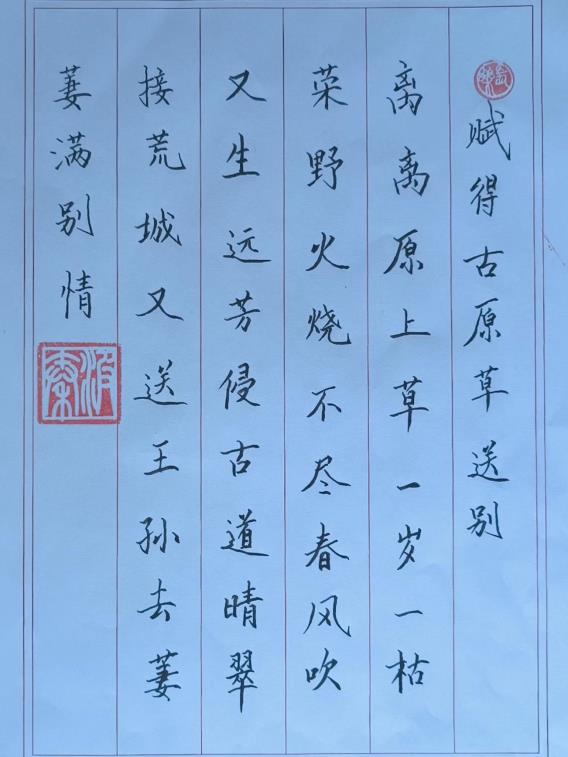 赋得古原草送别
离离原上草一岁一枯
荣野火烧不尽春风吹
又生远芳侵古道晴翠
接荒城又送王孙去萋
萋满别情